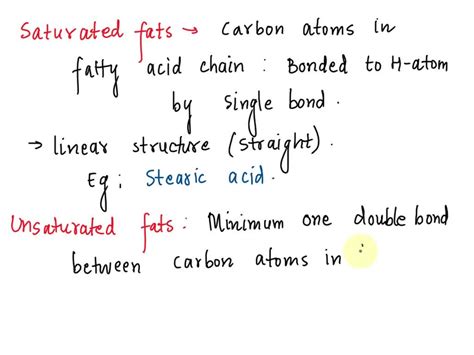 Saturated fats → Carbon atoms in
fatty acid chain : Bonded to H-atom
by single bond.
→ linear structure (straight).
Eg: Stearic acid.
Unsaturated fats : Minimum one double bond
between carbon atoms in